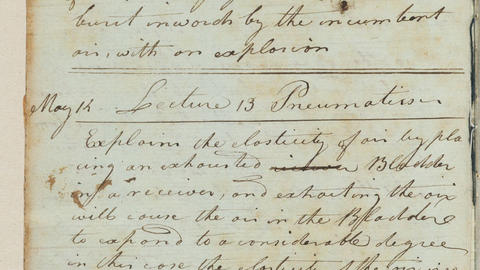 burst inwords by the incumbent
air, with an explosion
May 14 Lecture 13 Pneumatics
Explains the elosticity of air by pla
cing an exhausted Bladder
in a receiver, and exhausting the air
will cause the air in the Bladder
to expand to a considerable degree
in this case the elosticity of the